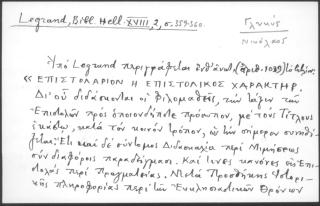 Legrand, Bibl. Hell. XVIII, 2, σ. 359-360.
Γλυκύς
Νικόλαος
Ὑπὸ Legrand περιγράφεται
« ΕΠΙΣΤΟΛΑΡΙΟΝ Η ΕΠΙΣΤΟΛΙΚΟΣ ΧΑΡΑΚΤΗΡ.
Δι' οὗ διδάσκονται οἱ Φιλομαθεῖς, τὴν τάξιν τῶν
Ἐπιστολῶν πρὸς ὁποιονδήποτε πρόσωπον, μὲ τοὺς Τίτλους
ἑκάστῳ, κατὰ τὸν κοινὸν τρόπον, ὡς τὴν σήμερον συνηθί-
ζεται. Ἔτι καὶ δὲ σύντομος Διδασκαλία περὶ Μιμήσεως
σὺν διαφόροις παραδείγμασι. Καί τινες κανόνες εἰς Ἐπι-
στολὰς περὶ Πραγματείας. Μετὰ Προσθήκης Ἱστορι-
κῆς πληροφορίας περὶ τῶν Ἐκκλησιαστικῶν Θρόνων